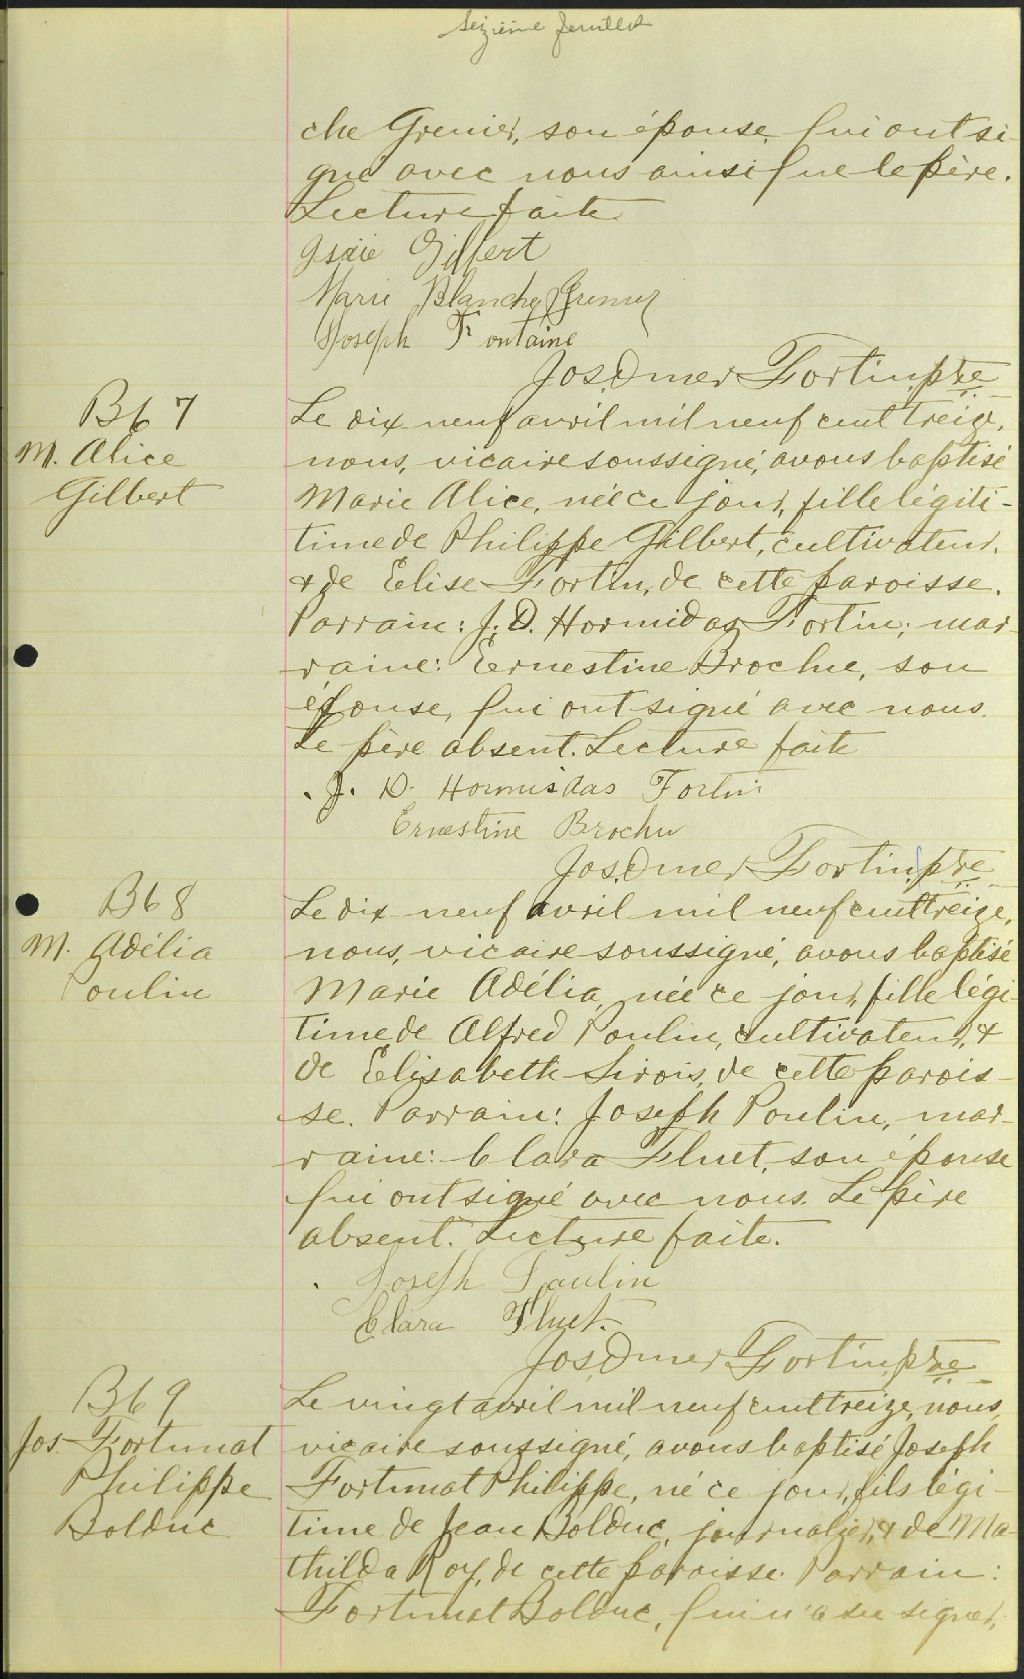 Seizième feuillet
che Grenier, son épouse qui ont si-
gné avec nous ainsi que le père.
Lecture faite
Isaïe Gilbert
Marie Blanche Grenier
Joseph Fontaine
Jos. Omer Fortin, ptre
B67
M. Alice
Gilbert
Le dix neuf avril mil neuf cent treize,
nous, vicaire soussigné, avons baptisé
Marie Alice, née ce jour, fille légiti-
time de Philippe Gilbert, cultivateur,
& de Elise Fortin, de cette paroisse.
Parrain: J. D. Hormidas Fortin; mar-
raine: Ernestine Brochu, son
épouse, qui ont signé avec nous.
Le père absent. Lecture faite
J. D. Hormisdas Fortin
Ernestine Brochu
Jos. Omer Fortin, ptre
B68
M. Adélia
Poulin
Le dix neuf avril mil neuf cent treize,
nous, vicaire soussigné, avons baptisé
Marie Adélia, née ce jour, fille légi-
time de Alfred Poulin, cultivateur, &
de Elisabeth Sirois, de cette parois-
se. Parrain: Joseph Poulin, mar-
raine: Clara Fluet, son épouse
qui ont signé avec nous. Le père
absent. Lecture faite.
Joseph Paulin
Clara Fluet.
Jos. Omer Fortin, ptre
B69
Jos. Fortunat
Philippe
Bolduc
Le vingt avril mil neuf cent treize, nous,
vicaire soussigné, avons baptisé Joseph
Fortunat Philippe, né ce jour, fils légi-
time de Jean Bolduc, journalier, & de Ma-
thilda Roy, de cette paroisse. Parrain:
Fortunat Bolduc, qui n'a su signer,